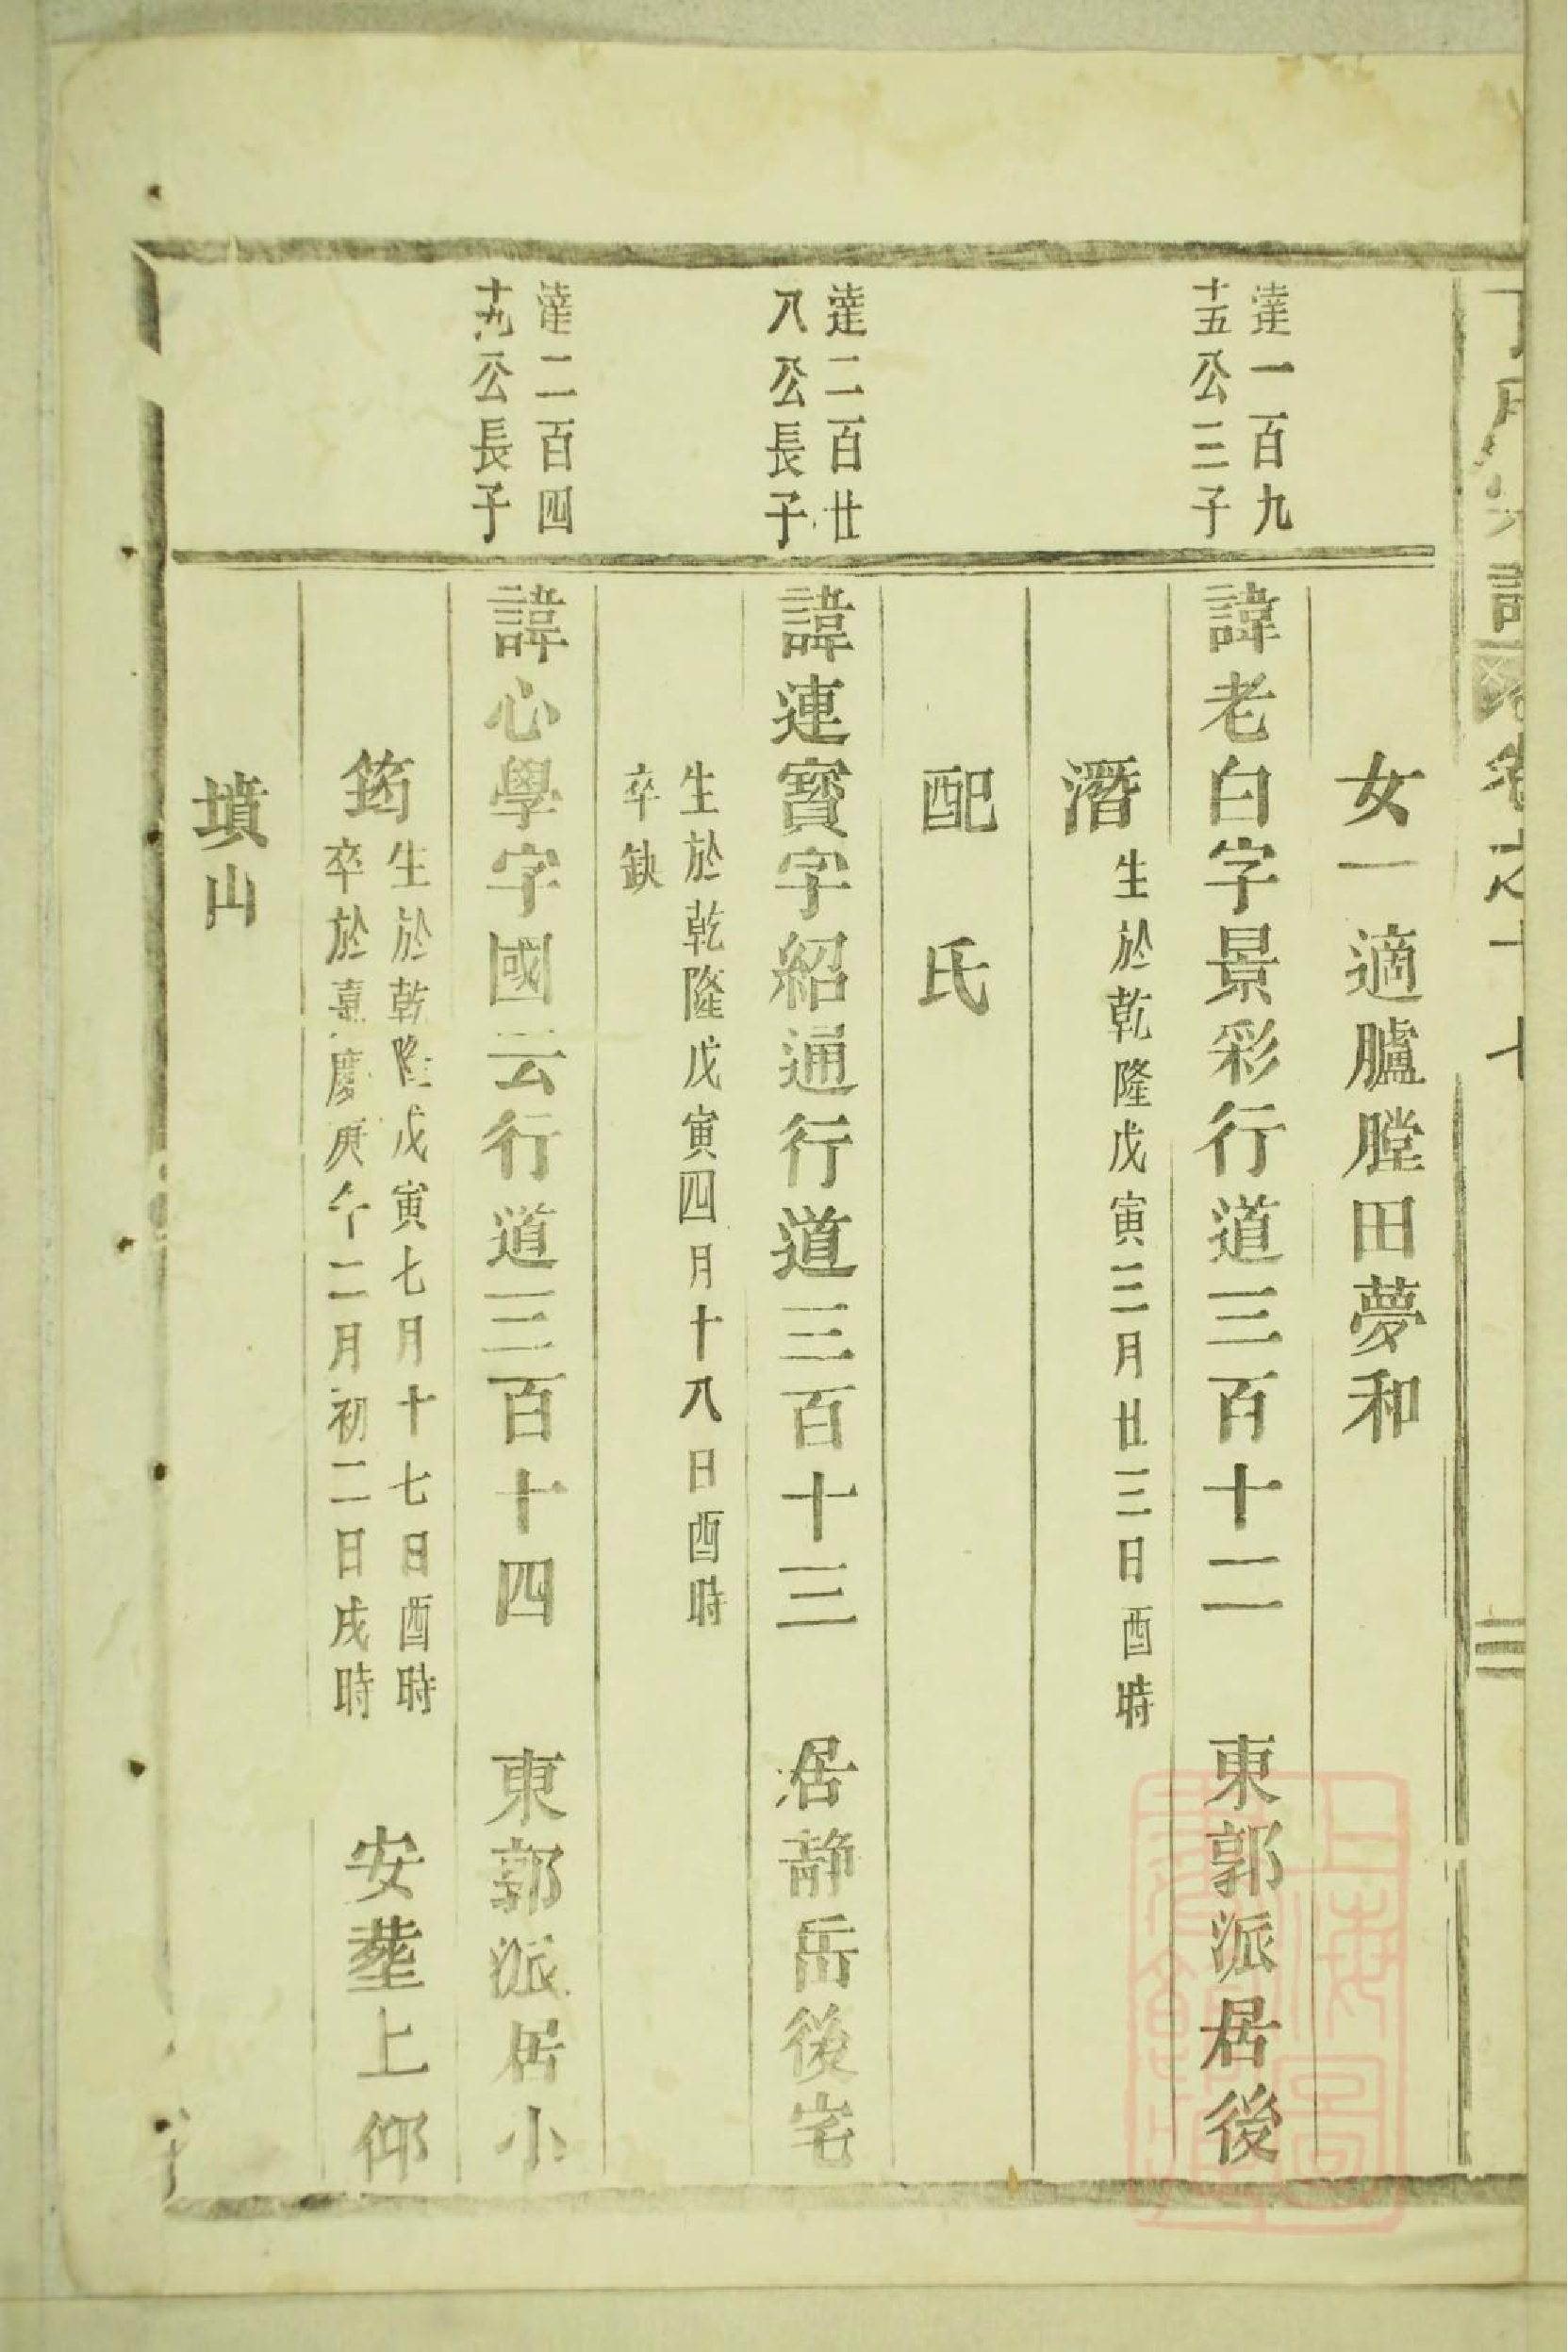 卷之十七
女一適臚膛田夢和
達一百九
十五公三子
諱老白字景彩行道三百十二 東郭派居後
潛
生於乾隆戊寅三月廿三日酉時
配 氏
達二百廿
八公長子
諱連寶字紹通行道三百十三 居靜岳後宅
生於乾隆戊寅四月十八日酉時
卒缺
達二百四
十九公長子
諱心學字國云行道三百十四 東郭派居小
筠
生於乾隆戊寅七月十七日酉時
卒於嘉慶庚午二月初二日戌時
安塟上仰
墳山
上海圖
書館藏